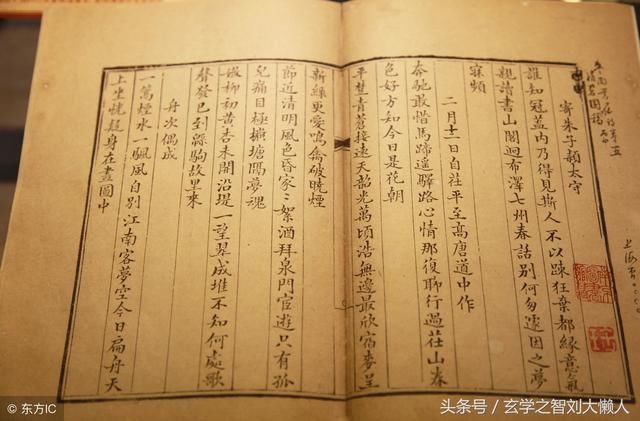 寄朱子穎太守
誰知冠蓋內乃得見斯人不以踈狂棄都緣意氣
親請書山閣迥布澤七州春話別何匆遽因之夢
寐頻
二月十二日自茌平至高唐道中作
奔馳敢惜馬蹄遥驛路心情那復聊行過茌山春
色好方知今日是花朝
平楚青蒼接遠天韶光萬頃浩無邊最欣宿麥呈
新綠更愛鳴禽破曉煙
節近清明風色昏家〻絮酒拜泉門宦遊只有孤
兒痛目極橫塘隔夢魂
嫩柳初黃杏未開沿堤一望翠成堆不知何處歌
聲發已到緜駒故里來
舟次偶成
一篙煙水一颿風自別江南客夢空今日扁舟天
上坐恍疑身在畫圖中
© 东方IC
头条号 / 玄学之智刘大懒人